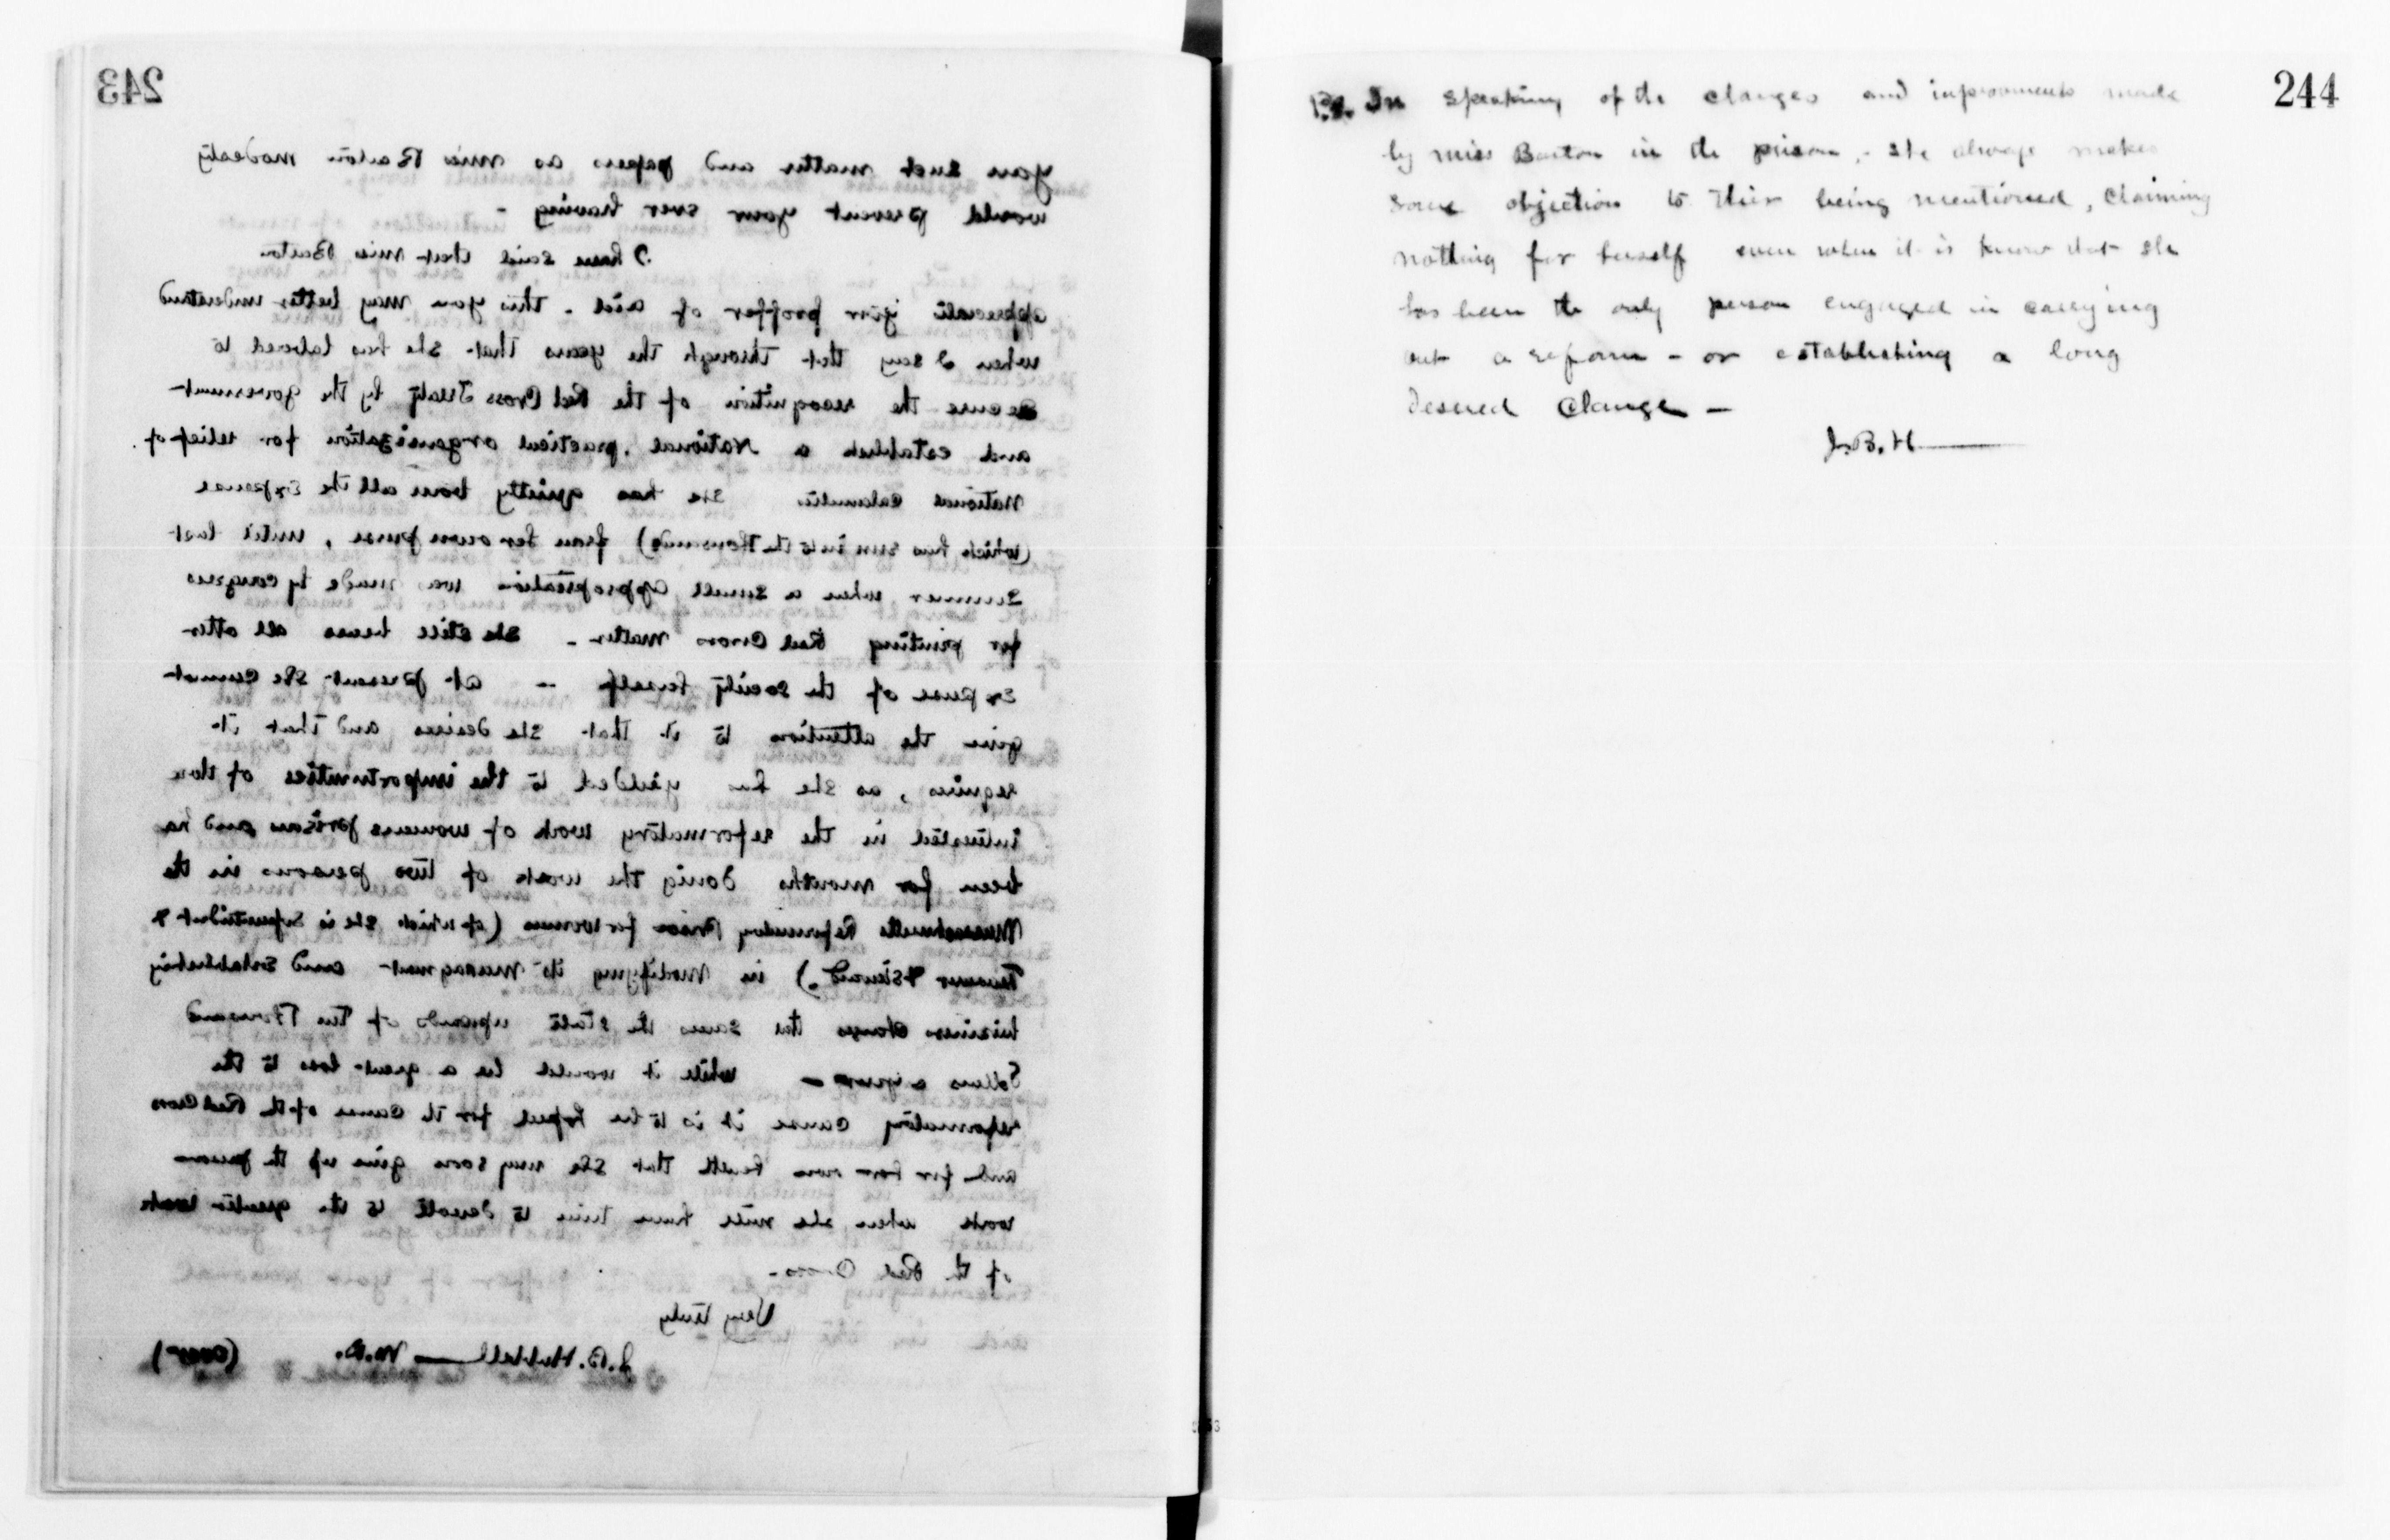 243
you such matter and papers as miss Barton modesty
would prevent your ever having -
I have said that miss Barton
appreciate your proffer of aid - this you may better understand
when I say that through the years that she has labored to
secure the recognition of the Red Cross Treaty by the government
and establish a National, practical organization for relief of
National calamities she has quietly born all the expense
(which has run into the thousands) from her own purse, until last
summer when a small appropriation was made by congress
for printing Red Cross matter - she still bears all other
expense of the society herself - at present she cannot
give the attention to it that she desires and that it
requires, as she has yielded to the importunities of those
interested in the reformatory work of womens prison and has
been for months doing the work of two persons in the
Massachusetts Reformatory Prison for women (of which she is Superintendent &
Treasurer & steward.) in modifying its managment and establishing
business changes that saves the state upwards of Ten Thousand
Dollars a year - while it would be a great loss to the
reformatory cause it is to be hoped for the cause of the Red Cross
and for her own health that she may soon give up the prison
work when she will have time to devote to the greater work
of the Red Cross -
Very truly
J. B. Hubbell M.D. (over)
244
P.S. In speaking of the changes and improvements made
by miss Barton in the prison, - she always makes
some objection to their being mentioned, claiming
nothing for herself even when it is know that she
has been the only person engaged in carrying
out a reform - or establishing a long
desired change -
J. B. H